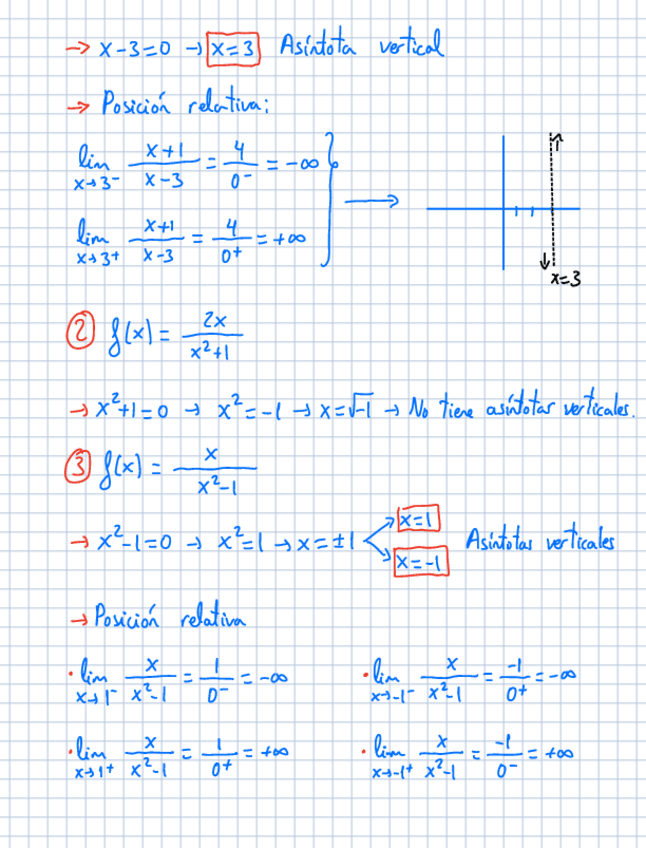 → x-3=0 → x=3 Asíntota vertical
→ Posición relativa:
lim x→3⁻ (x+1)/(x-3) = 4/0⁻ = -∞
lim x→3⁺ (x+1)/(x-3) = 4/0⁺ = +∞
x=3
② f(x) = 2x/(x²+1)
→ x²+1=0 → x²=-1 → x=√-1 → No tiene asíntotas verticales.
③ f(x) = x/(x²-1)
→ x²-1=0 → x²=1 → x=±1 x=1 x=-1 Asíntotas verticales
→ Posición relativa
· lim x→1⁻ x/(x²-1) = 1/0⁻ = -∞ · lim x→-1⁻ x/(x²-1) = -1/0⁺ = -∞
· lim x→1⁺ x/(x²-1) = 1/0⁺ = +∞ · lim x→-1⁺ x/(x²-1) = -1/0⁻ = +∞